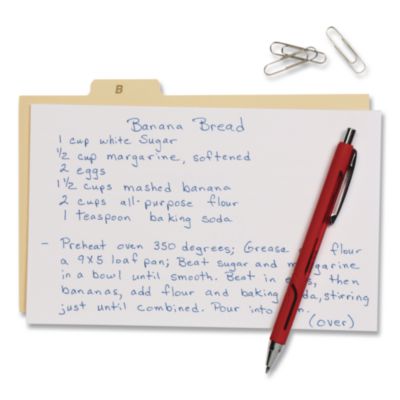 B
Banana Bread
1 cup white Sugar
1/2 cup margarine, softened
2 eggs
1 1/2 cups mashed banana
2 cups all-purpose flour
1 teaspoon baking soda
- Preheat oven 350 degrees; Grease flour
a 9X5 loaf pan; Beat sugar and margarine
in a bowl until smooth. Beat in then
bananas, add flour and baking stirring
just until combined. Pour into
(over)